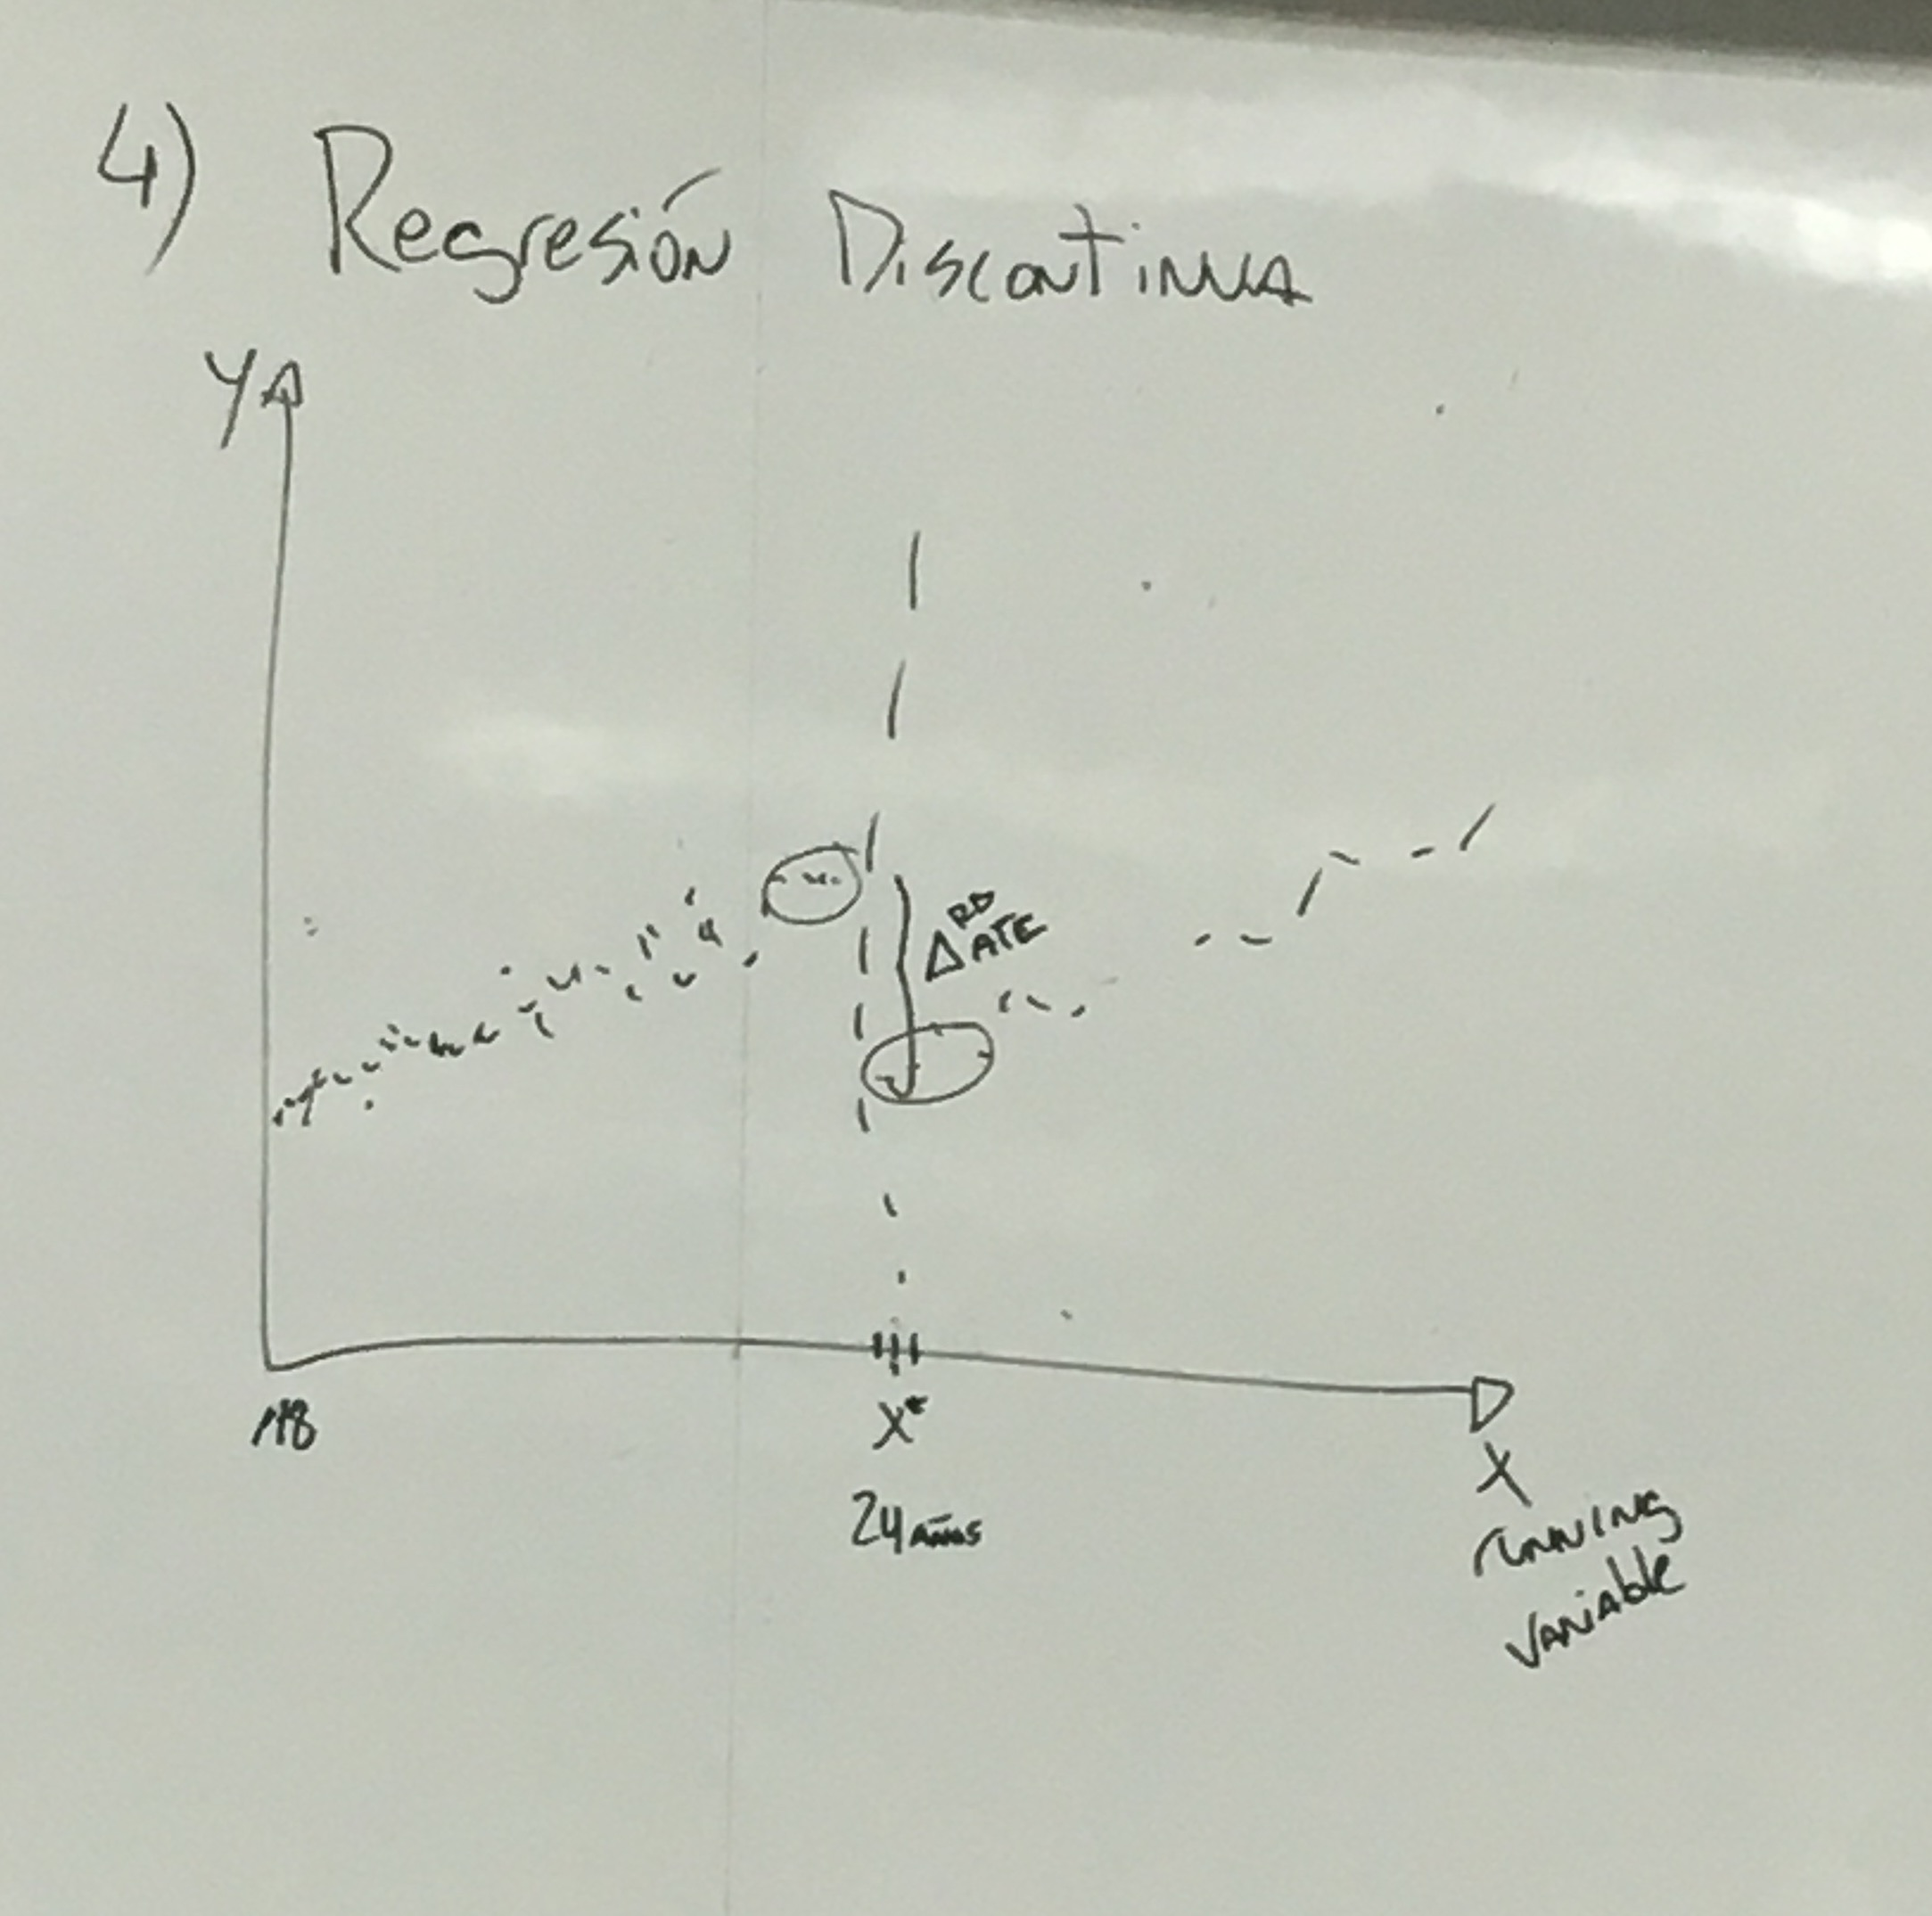 4) Regresión Discontinua
Y
Δ RD ATE
18
X*
24 años
X
running
variable